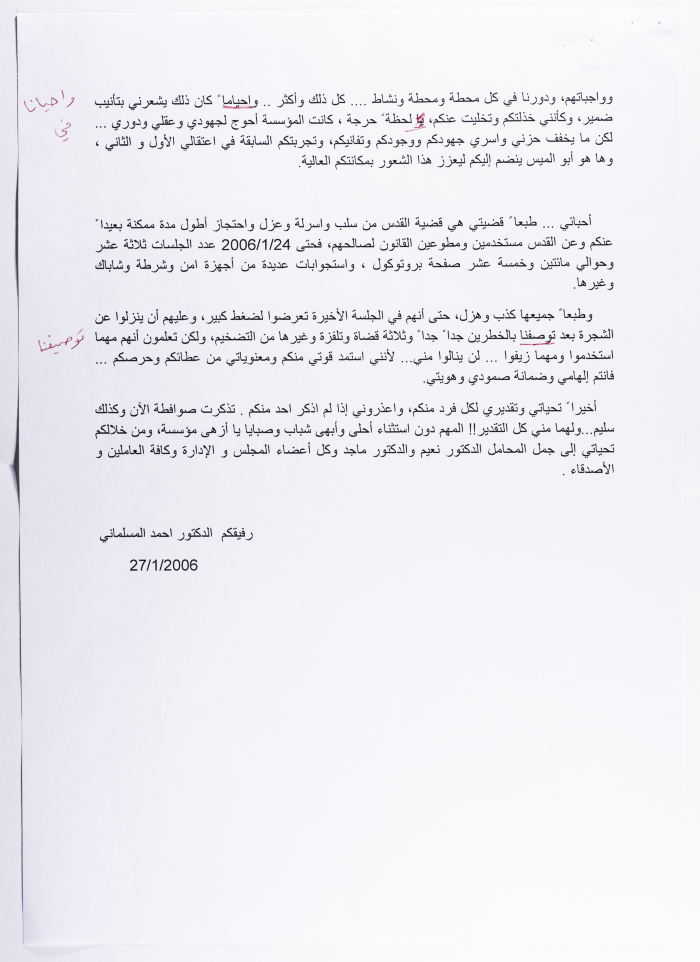 وواجباتهم، ودورنا في كل محطة ومحطة ونشاط .... كل ذلك وأكثر .. واحياما ً كان ذلك يشعرني بتأنيب
واحيانا
ضمير، وكأنني خذلتكم وتخليت عنكم، لحظة ً حرجة ، كانت المؤسسة أحوج لجهودي وعقلي ودوري ...
في
لكن ما يخفف حزني واسري جهودكم ووجودكم وتفانيكم، وتجربتكم السابقة في اعتقالي الأول و الثاني ،
وها هو أبو الميس ينضم إليكم ليعزز هذا الشعور بمكانتكم العالية.
أحبائي ... طبعا ً قضيتي هي قضية القدس من سلب واسرلة وعزل واحتجاز أطول مدة ممكنة بعيدا ً
عنكم وعن القدس مستخدمين ومطوعين القانون لصالحهم، فحتى 2006/1/24 عدد الجلسات ثلاثة عشر
وحوالي مائتين وخمسة عشر صفحة بروتوكول ، واستجوابات عديدة من أجهزة امن وشرطة وشاباك
وغيرها.
وطبعا ً جميعها كذب وهزل، حتى أنهم في الجلسة الأخيرة تعرضوا لضغط كبير، وعليهم أن ينزلوا عن
الشجرة بعد توصفنا بالخطرين جدا ً جدا ً وثلاثة قضاة وتلفزة وغيرها من التضخيم، ولكن تعلمون أنهم مهما
توصيفنا
استخدموا ومهما زيفوا ... لن ينالوا مني... لأنني استمد قوتي منكم ومعنوياتي من عطائكم وحرصكم ...
فانتم إلهامي وضمانة صمودي وهويتي.
أخيرا ً تحياتي وتقديري لكل فرد منكم، واعذروني إذا لم اذكر احد منكم . تذكرت صوافطة الآن وكذلك
سليم...ولهما مني كل التقدير!! المهم دون استثناء أحلى وأبهى شباب وصبايا يا أزهى مؤسسة، ومن خلالكم
تحياتي إلى جمل المحامل الدكتور نعيم والدكتور ماجد وكل أعضاء المجلس و الإدارة وكافة العاملين و
الأصدقاء .
رفيقكم الدكتور احمد المسلماني
27/1/2006